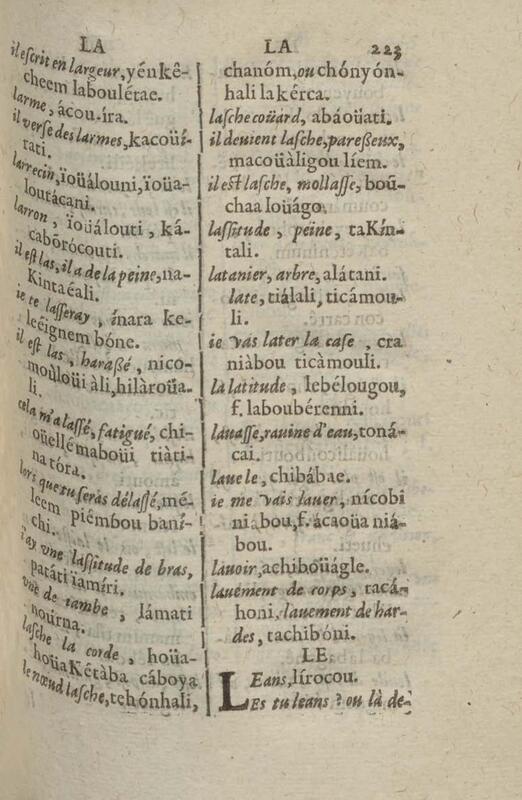 LA
il escrit en largeur, yénkê-
cheem laboulétae.
larme, ácou-íra.
il verse des larmes, kacoüí-
rati.
larrecin, ïoüálouni, ïoüa-
loutácani.
larron, ïoüálouti, ká-
cabôrócouti.
il est las, il a de la peine, na-
Kintaéali.
ie te lasseray, ínara ke-
leéignem bóne.
il est las, harassé, nico-
moúloüi àli, hilàroüa-
li.
cela m'a lassé, fatigué, chi-
oüellémaboüi tiàti-
na tóra.
lors que tu seras délassé, mé-
leem piémbou baní-
chi.
i'ay vne lassitude de bras,
patáti ïamíri.
vne de iambe, lámati
nourna.
lasche la corde, hoüa-
hoüaKétàba cáboya
le nœud lasche, tchónhali,
LA 223
chanóm, ou chónyón-
hali lakérca.
lasche coüard, abáoüati.
il deuient lasche, paresseux,
macoüàligou líem.
il est lasche, mollasse, boû-
chaa Ioüágo.
lassitude, peine, taKín-
tali.
latanier, arbre, alátani.
late, tiálali, ticámou-
li.
ie vas later la case, cra
niàbou ticàmouli.
la latitude, lebélougou,
f. laboubérenni.
lauasse, rauine d'eau, toná-
cai.
laue le, chibábae.
ie me vais lauer, nícobi
niàbou, f. ácaoüa niá-
bou.
lauoir, achiboüágle.
lauément de corps, tacá-
honi, lauement de har-
des, tachibóni.
LE
LEans, lírocou.
Es tu leans? ou là de-